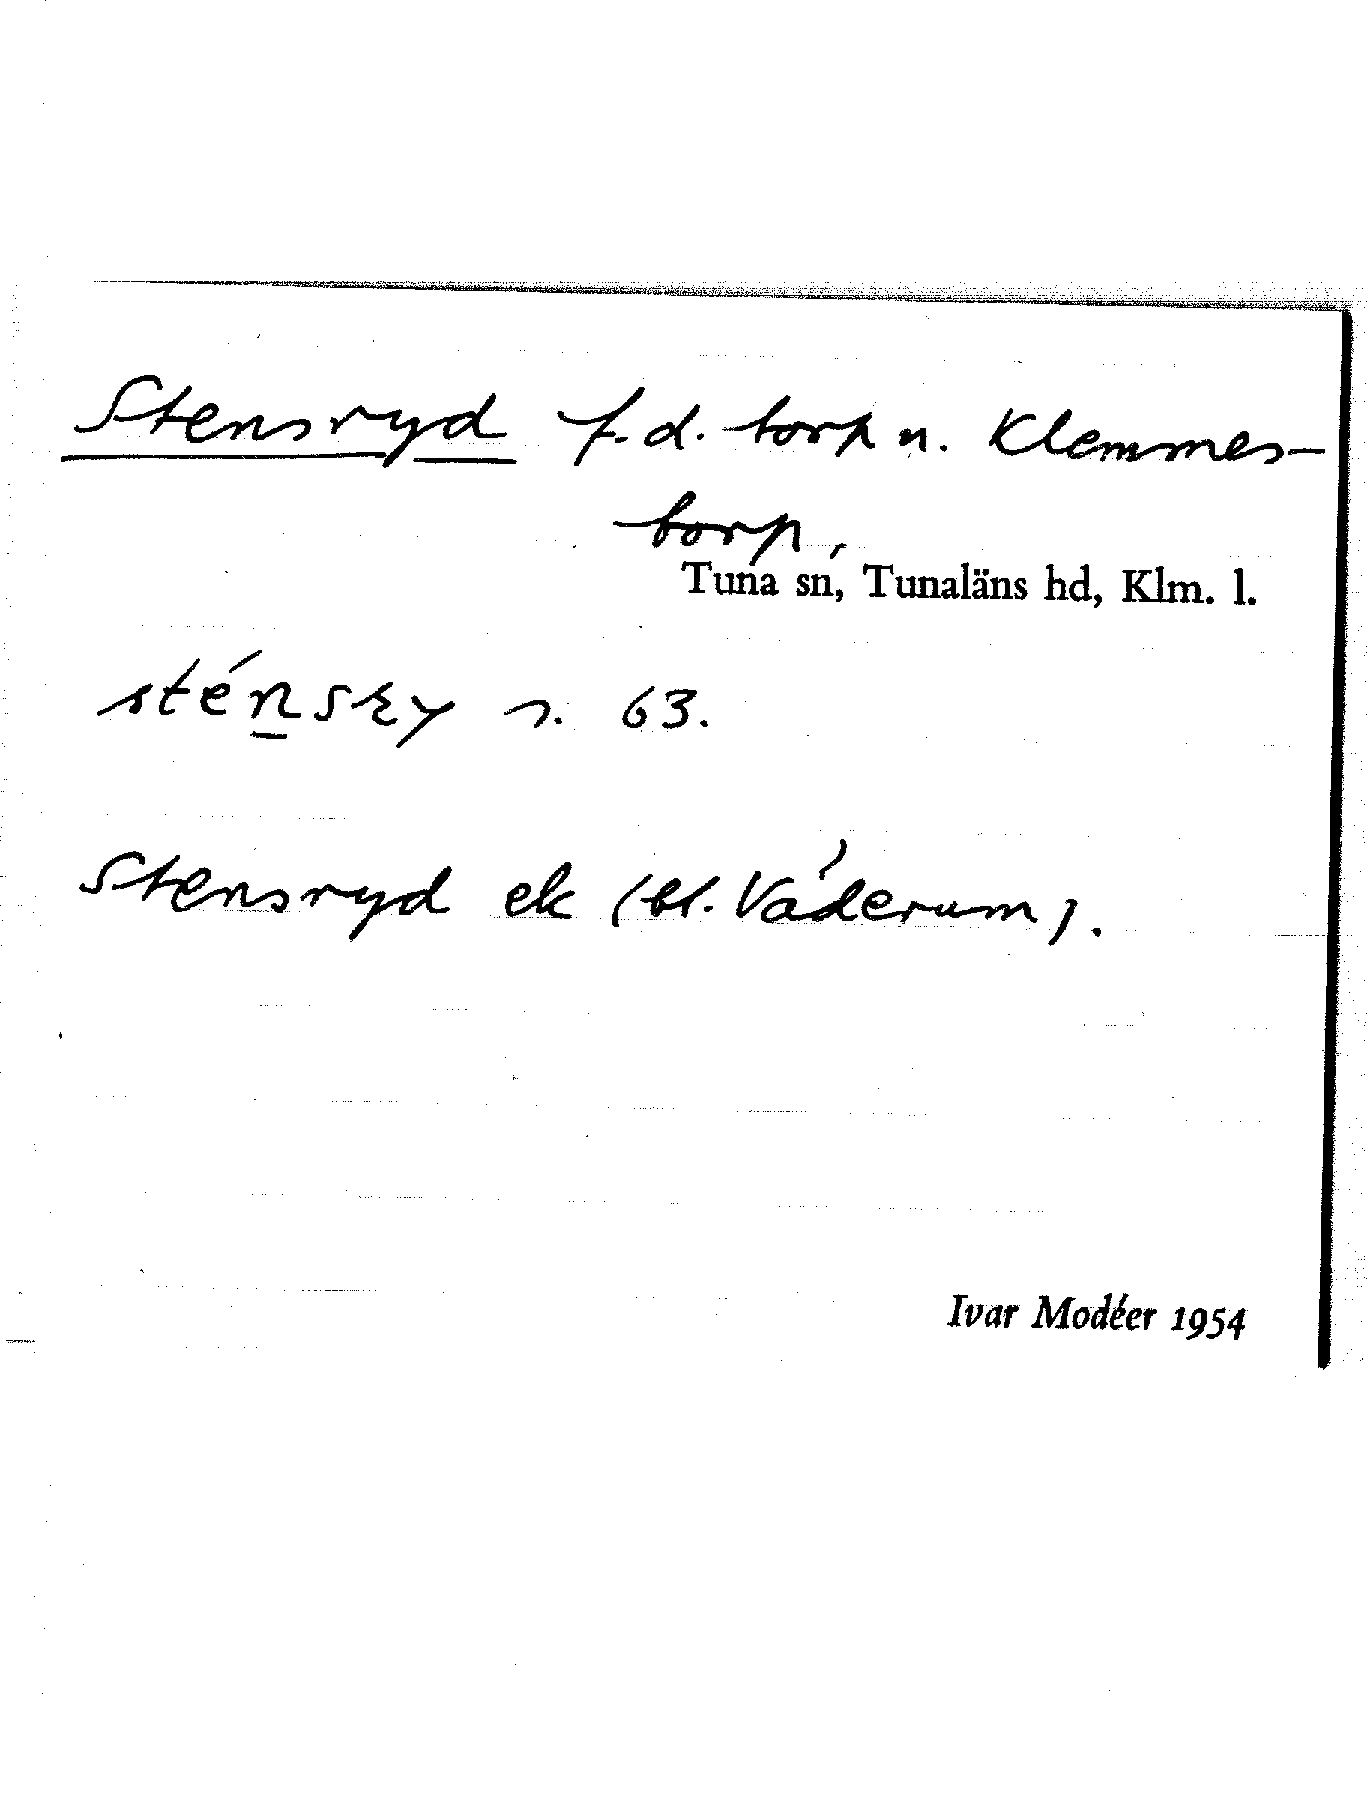 Stensryd f.d. torp u. Klemmes-
torp,
Tuna sn, Tunaläns hd, Klm. l.
s. 63.
Stensryd ek (bl. Väderum).
Ivar Modéer 1954